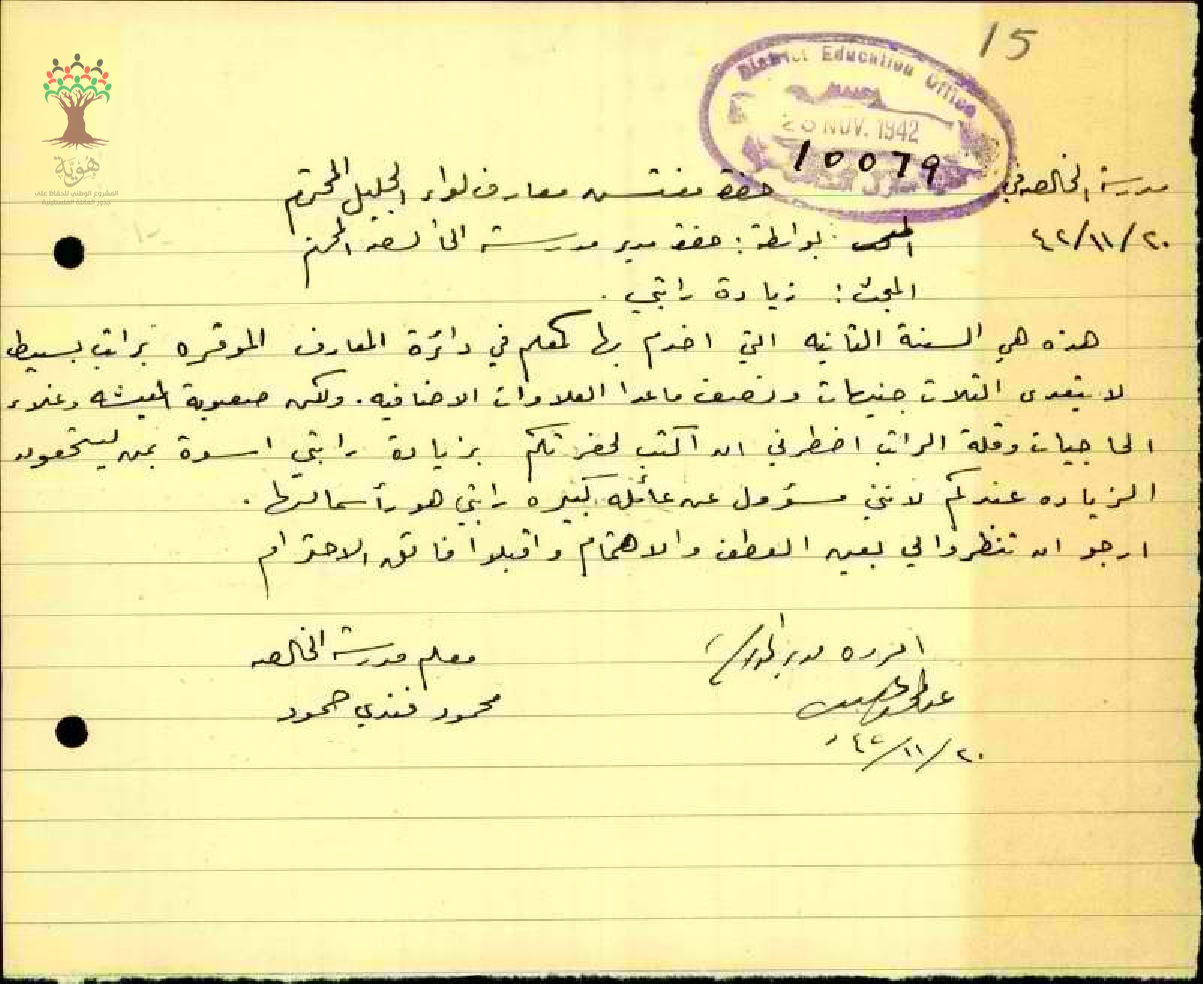 15
District Education Office
23 NOV. 1942
10079
هوية
المشروع الوطني للحفاظ على
جذور العائلة الفلسطينية
مدرسة الخالصه في
حضرة مفتش معارف لواء الجليل المحترم
٢٠/١١/٤٢
بواسطة: حضرة مدير مدرسة الخالصه المحترم
المبحث: زيادة راتبي.
هذه هي السنة الثانيه التي اخدم بها كمعلم في دائرة المعارف الموقره براتب بسيط
لا يتعدى الثلاث جنيهات ونصف ماعدا العلاوات الاضافيه. ولكن صعوبة المعيشه وغلاء
الحاجيات وقلة الراتب اضطرني ان اكتب لحضرتكم بزيادة راتبي اسوة بمن يستحقون
الزياده عندكم لانني مسؤول عن عائله كبيره راتبي هو رأسمالها.
ارجو ان تنظروا الي بعين العطف والاهتمام واقبلوا فائق الاحترام
معلم مدرسة الخالصه
محمود فندي حمود
٢٠/١١/٤٢